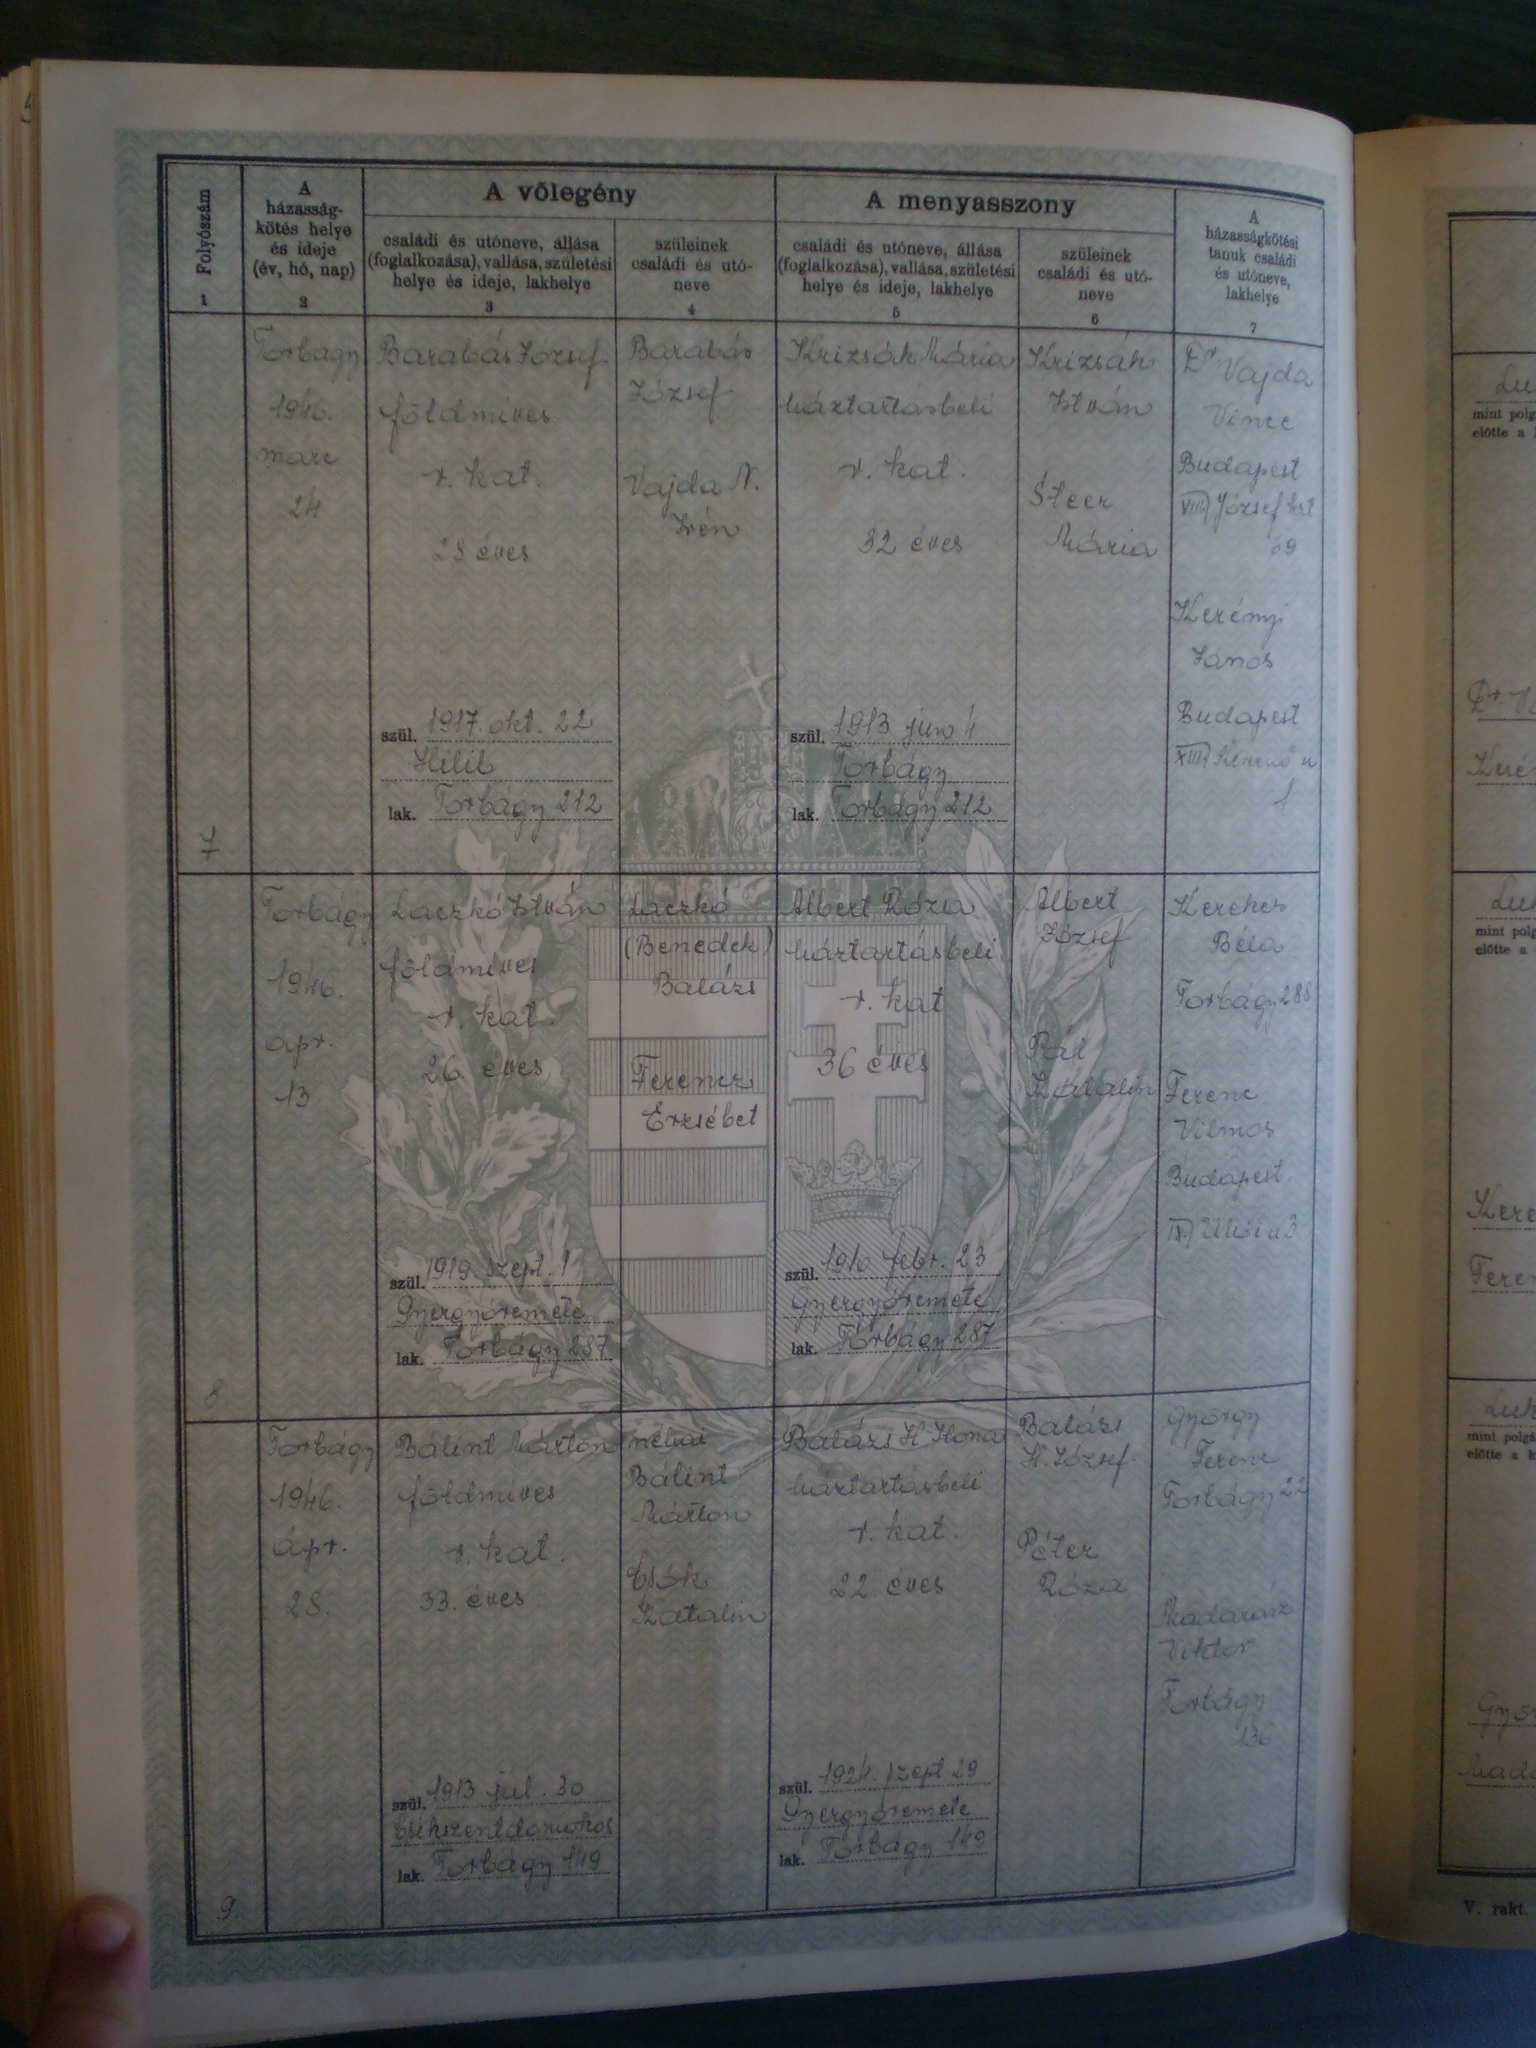 Folyószám
1
A
házasság-
kötés helye
és ideje
(év, hó, nap)
2
A vőlegény
családi és utóneve, állása
(foglalkozása), vallása, születési
helye és ideje, lakhelye
3
szüleinek
családi és utó-
neve
4
A menyasszony
családi és utóneve, állása
(foglalkozása), vallása, születési
helye és ideje, lakhelye
5
szüleinek
családi és utó-
neve
6
A
házasságkötési
tanuk családi
és utóneve,
lakhelye
7
7
Torbágy
1946.
márc
24
Barabás József
földmíves
r. kat.
28 éves
szül. 1917. okt. 22
Hilib
lak. Torbágy 212
Barabás
József
Vajda N.
Irén
Krizsák Mária
háztartásbeli
r. kat.
32 éves
szül. 1913 jun 4
Torbágy
lak. Torbágy 212
Krizsák
István
Steer
Mária
Dr Vajda
Vince
Budapest
VIII) József krt
69
Kerényi
János
Budapest
XIII)
1
8
Torbágy
1946.
ápr.
13
Laczkó István
földmíves
r. kat.
26. éves
szül. 1919. szept. 1
Gyergyóremete
lak. Torbágy 287
Laczkó
(Benedek)
Balázs
Ferencz
Erzsébet
Albert Róza
háztartásbeli
r. kat
36 éves
szül. 1910 febr. 23
Gyergyóremete
lak. Torbágy 287
Albert
József
Pál
Katalin
Kerekes
Béla
Torbágy 288
Ferenc
Vilmos
Budapest.
IX.) Üllői u 3
9.
Torbágy
1946.
ápr.
28.
Bálint Márton
földmíves
r. kat.
33. éves
szül. 1913 jul. 30
Csikszentdomokos
lak. Torbágy 149
néhai
Bálint
Márton
Csók
Katalin
Balázs H. Ilona
háztartásbeli
r. kat.
22. éves
szül. 1924. szept 29
Gyergyóremete
lak. Torbágy 149
Balázs
H. József.
Péter
Róza
György
Ferenc
Torbágy 22
Madarász
Viktor
Torbágy
136
mint polg
előtte a
Dr. V
mint polg
előtte a
Kere
Feren
mint polgá
előtte a k
V. rakt.